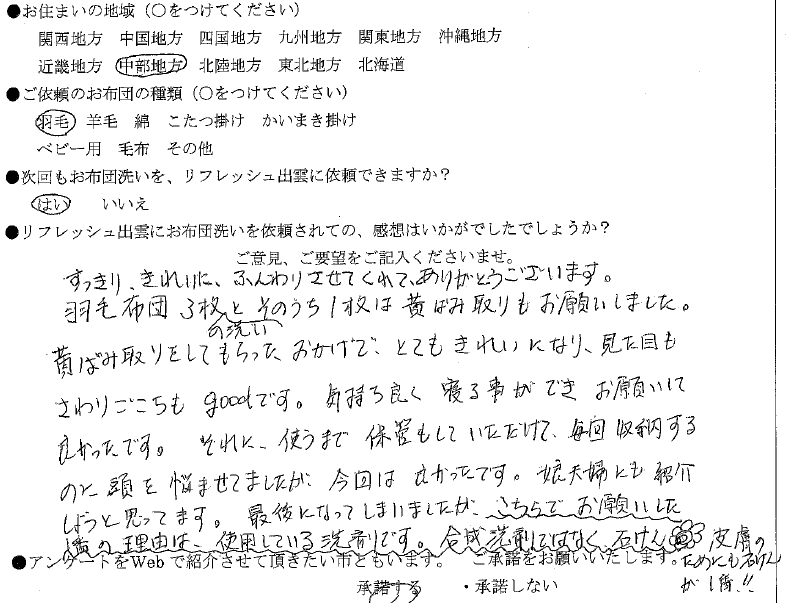 ●お住まいの地域（○をつけてください）
関西地方 中国地方 四国地方 九州地方 関東地方 沖縄地方
近畿地方 中部地方 北陸地方 東北地方 北海道
●ご依頼のお布団の種類（○をつけてください）
羽毛 羊毛 綿 こたつ掛け かいまき掛け
ベビー用 毛布 その他
●次回もお布団洗いを、リフレッシュ出雲に依頼できますか？
はい いいえ
●リフレッシュ出雲にお布団洗いを依頼されての、感想はいかがでしたでしょうか？
ご意見、ご要望をご記入くださいませ。
すっきり、きれいに、ふんわりさせてくれて、ありがとうございます。
羽毛布団3枚とそのうち1枚は黄ばみ取りもお願いしました。
の洗い
黄ばみ取りをしてもらったおかげで、とてもきれいになり、見た目も
さわりごこちもgoodです。気持ち良く寝る事ができお願いして
良かったです。それに、使うまで保管もしていただけて、毎回収納する
のに頭を悩ませてましたが、今回は良かったです。娘夫婦にも紹介
しようと思ってます。最後になってしまいましたが、こちらでお願いした
の理由は、使用している洗剤です。合成洗剤ではなく、石けん
皮膚の
ためにも石けん
が1番!!
●アンケートをWebで紹介させて頂きたい市ともいます。 ご承諾をお願いいたします。
承諾する ・承諾しない